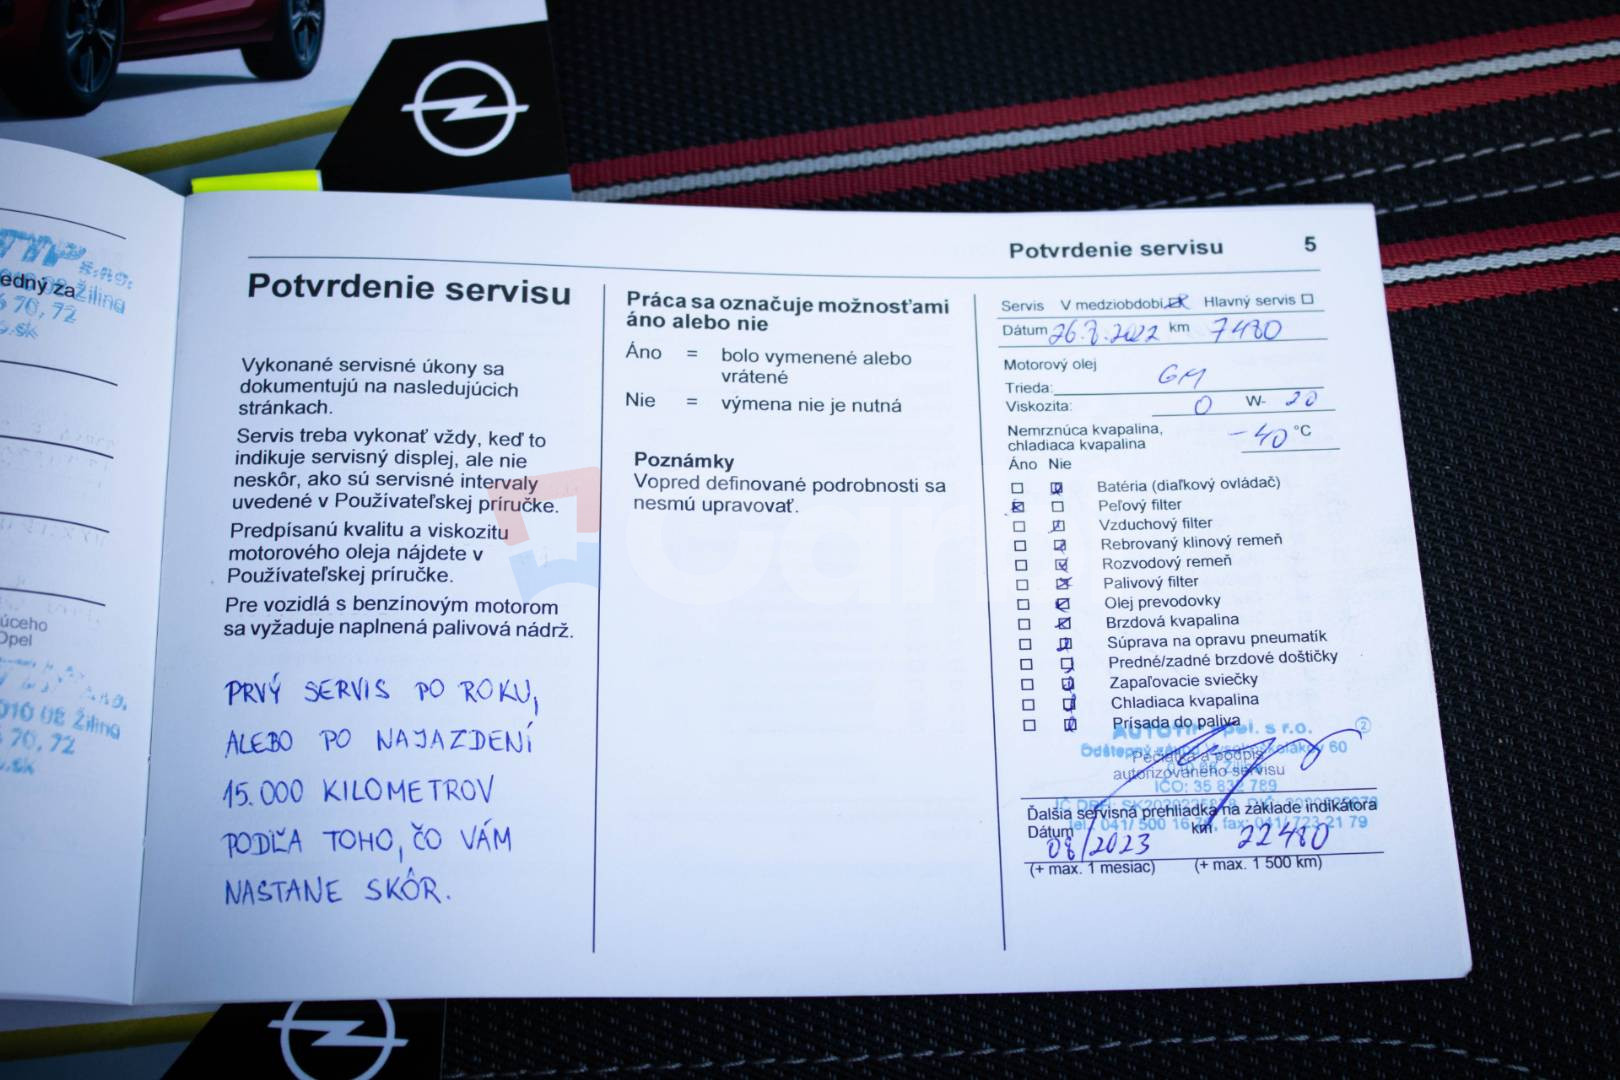 s.r.o.
edný za
Žilina
70, 72
.sk
účeho
Opel
010 08 Žilina
70, 72
.sk
Potvrdenie servisu 5
Potvrdenie servisu
Vykonané servisné úkony sa
dokumentujú na nasledujúcich
stránkach.
Servis treba vykonať vždy, keď to
indikuje servisný displej, ale nie
neskôr, ako sú servisné intervaly
uvedené v Používateľskej príručke.
Predpísanú kvalitu a viskozitu
motorového oleja nájdete v
Používateľskej príručke.
Pre vozidlá s benzínovým motorom
sa vyžaduje naplnená palivová nádrž.
PRVÝ SERVIS PO ROKU,
ALEBO PO NAJAZDENÍ
15.000 KILOMETROV
PODĽA TOHO, ČO VÁM
NASTANE SKÔR.
Práca sa označuje možnosťami
áno alebo nie
Áno = bolo vymenené alebo
vrátené
Nie = výmena nie je nutná
Poznámky
Vopred definované podrobnosti sa
nesmú upravovať.
Servis V medziobdobí Hlavný servis
Dátum 26.8.2022 km 7480
Motorový olej
Trieda: GM
Viskozita: 0 W- 20
Nemrznúca kvapalina,
chladiaca kvapalina -40 °C
Áno Nie
Batéria (diaľkový ovládač)
Peľový filter
Vzduchový filter
Rebrovaný klinový remeň
Rozvodový remeň
Palivový filter
Olej prevodovky
Brzdová kvapalina
Súprava na opravu pneumatík
Predné/zadné brzdové doštičky
Zapaľovacie sviečky
Chladiaca kvapalina
Prísada do paliva
AUTOTIP Opel. s r.o. 2
Odštepný závod Vysokoškolákov 60
Pečiatka a podpis
010 08 Žilina
autorizovaného servisu
IČO: 35 832 789
IČ DPH: SK2020225878
Ďalšia servisná prehliadka na základe indikátora
tel.: 041/ 500 16 70, fax: 041/ 723 21 79
Dátum 08/2023 km 22480
(+ max. 1 mesiac) (+ max. 1 500 km)